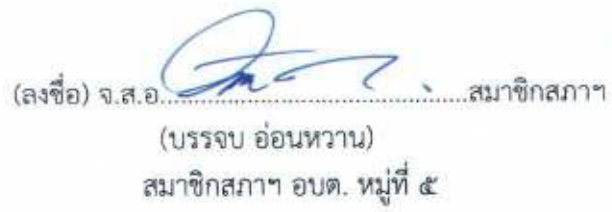 (ลงชื่อ) จ.ส.อ.......................................สมาชิกสภาฯ
(บรรจบ อ่อนหวาน)
สมาชิกสภาฯ อบต. หมู่ที่ ๕